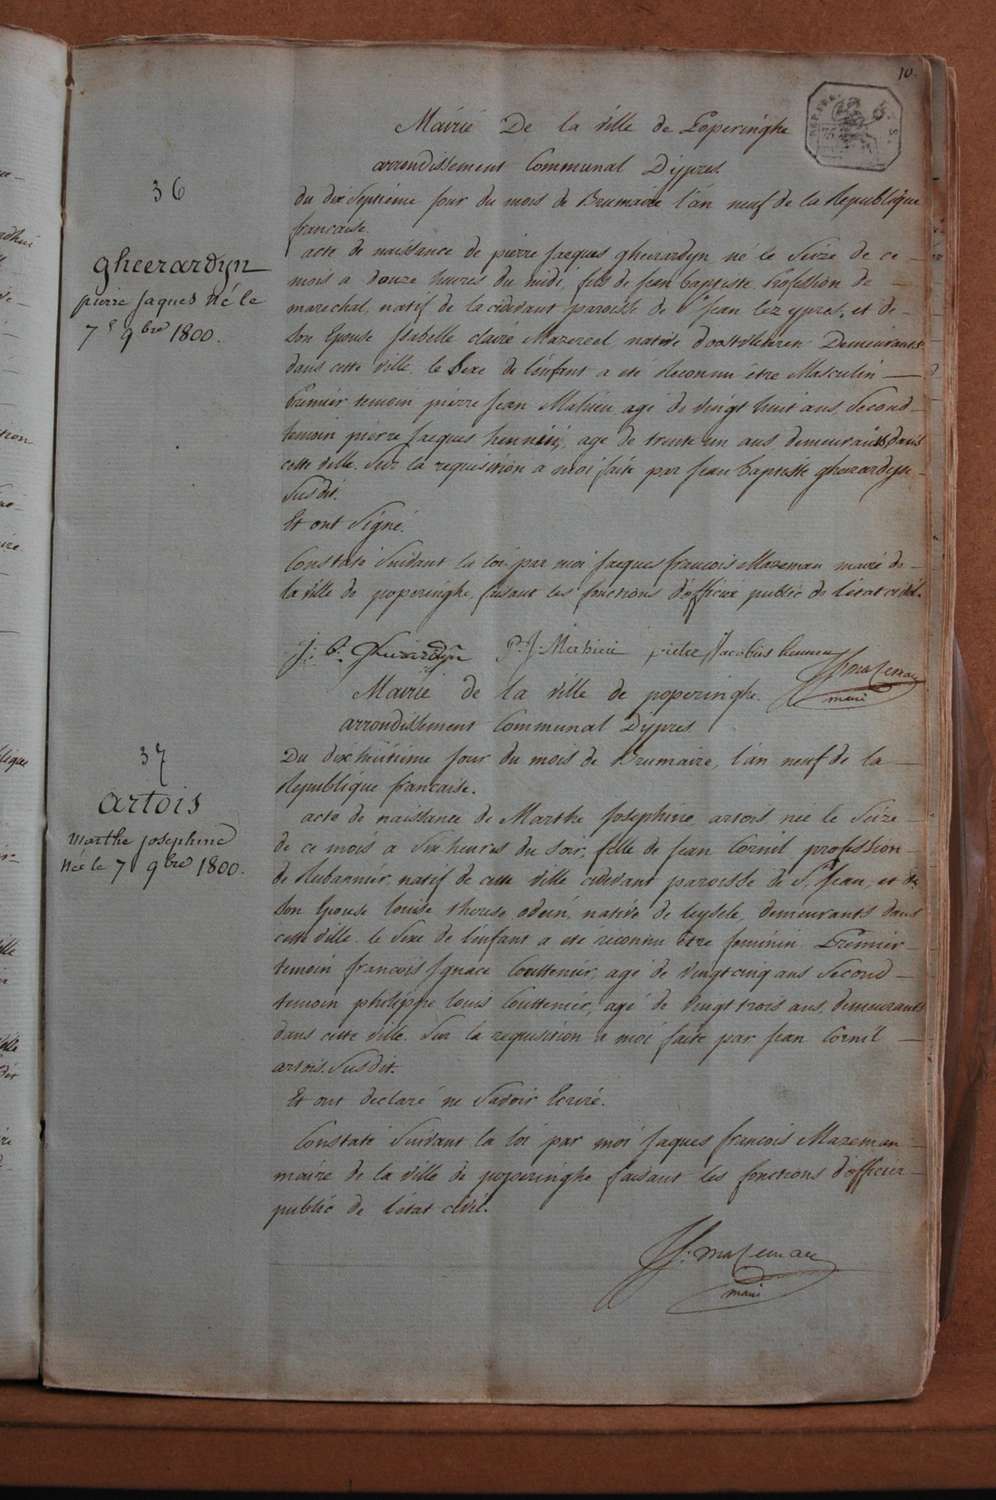 10.
Mairie De la ville de Poperinghe
arrondissement Communal D'ypres
36
du dix Septième jour du mois de Brumaire l'an neuf de la Republique
francaise.
gheerardyn
pierre jaques né le
7 9bre 1800.
acte de naissance de pierre jacques gheerardyn né le Seize de ce
mois a douze heures du midi, fils de jean baptiste, Profession de
marechal, natif de la cidevant paroisse de St jean lez ypres, et de
Son Epouse Isabelle claire Mazereel native d'oostvleteren Demeurants
dans cette ville le Sexe de l'enfant a eté Reconnu être Masculin
Premier temoin pierre jean Mahieu agé de vingt huit ans, Second
temoin pierre jacques hennin, agé de trente un ans demeurants dans
cette ville. Sur la requisition a moi faite par jean baptiste gheerardyn
Susdit.
Et ont Signé.
Constaté Suivant la loi par moi jaques francois Mazeman maire de
la ville de poperinghe, faisant les fonctions d'officier public de l'état civil.
J: B: Gheerardÿn P: J: Mahieu pieter Jacobus hennin JJ mazeman
maire
Mairie de la ville de poperinghe.
arrondissement Communal D'ypres
37
Du dix huitième jour du mois de Brumaire, l'an neuf de la
Republique francaise.
artois
marthe josephine
Née le 7 9bre 1800.
acte de naissance de Marthe Josephine artois née le Seize
de ce mois a Six heures du soir, fille de jean Cornil profession
de Rubannier, natif de cette ville cidevant paroisse de St jean, et de
Son Epouse louise therese odein, native de leysele, demeurants dans
cette ville. le Sexe de l'enfant a eté reconnu être feminin Premier
temoin francois Ignace Couttenier, agé de vingt cinq ans Second
temoin philippe louis Couttenier, agé de vingt trois ans, demeurants
dans cette ville. Sur la requisition a moi faite par jean Cornil
artois Susdit.
Et ont declaré ne Savoir Ecrire.
Constaté Suivant la loi par moi jaques francois Mazeman
maire de la ville de poperinghe faisant les fonctions d'officier
public de l'etat civil.
JJ. mazeman
maire